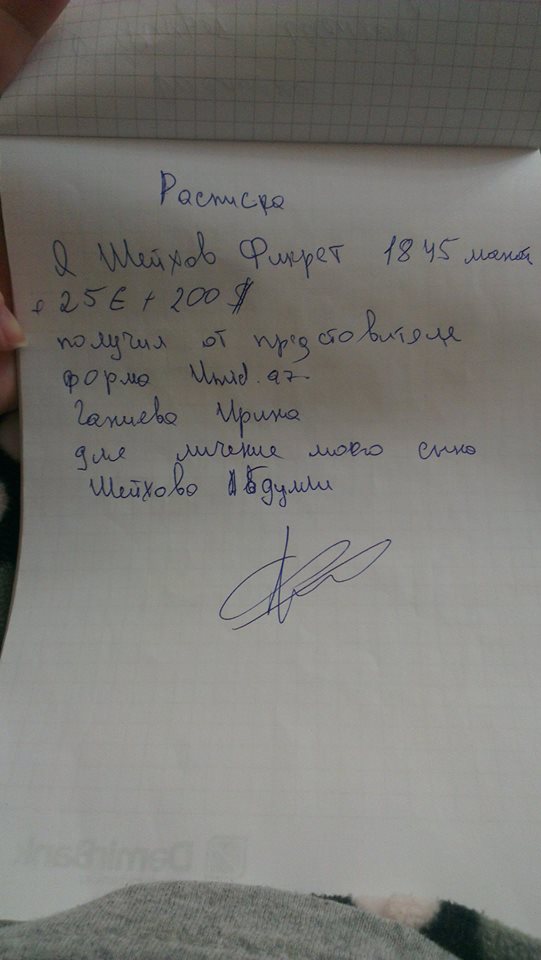 Расписка
Я Шейхов Фикрет 1845 манат
+ 25€ + 200 $
получил от представителе
форма Umid.az
Ганиева Ирина
для личение моего сына
Шейхова Абдулли
DemirBank